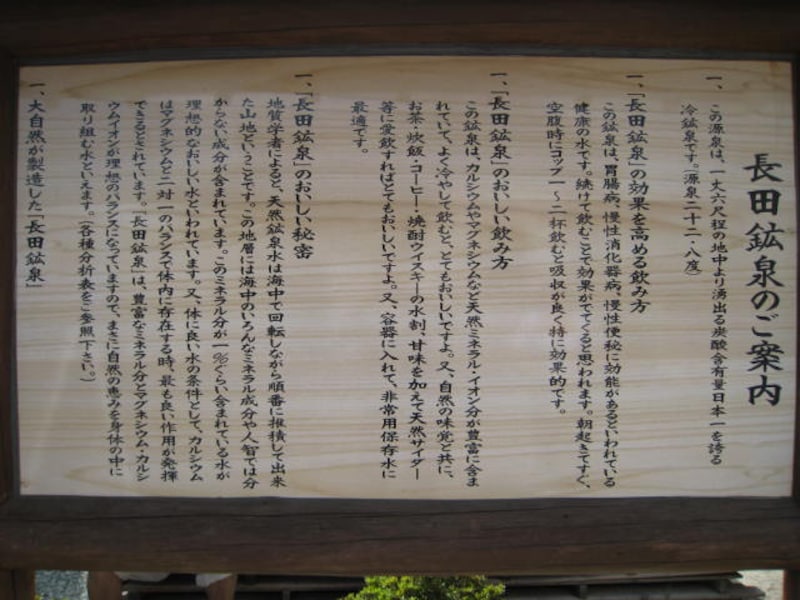 長田鉱泉のご案内
一、この源泉は、一丈六尺程の地中より湧出る炭酸含有量日本一を誇る
冷鉱泉です。（源泉二十二・八度）
一、「長田鉱泉」の効果を高める飲み方
この鉱泉は、胃腸病、慢性消化器病、慢性便秘に効能があるといわれている
健康の水です。続けて飲むことで効果がでてくると思われます。朝起きてすぐ、
空腹時にコップ一～二杯飲むと吸収が良く特に効果的です。
一、「長田鉱泉」のおいしい飲み方
この鉱泉は、カルシウムやマグネシウムなど天然ミネラル・イオン分が豊富に含ま
れていて、よく冷やして飲むと、とてもおいしいですよ。又、自然の味覚と共に、
お茶・炊飯・コーヒー・焼酎ウイスキーの水割、甘味を加えて天然サイダー
等に愛飲すればとてもおいしいですよ。又、容器に入れて、非常用保存水に
最適です。
一、「長田鉱泉」のおいしい秘密
地質学者によると、天然鉱泉水は海中で回転しながら順番に推積して出来
た山地ということです。この地層には海中のいろんなミネラル成分や人智では分
からない成分が含まれています。このミネラル分が一％ぐらい含まれている水が
理想的なおいしい水といわれています。又、体に良い水の条件として、カルシウム
はマグネシウムと二対一のバランスで体内に存在する時、最も良い作用が発揮
できるとされています。「長田鉱泉」は、豊富なミネラル分とマグネシウム・カルシ
ウムイオンが理想のバランスになっていますので、まさに自然の恵みを身体の中に
取り組む水といえます。（各種分析表をご参照下さい。）
一、大自然が製造した「長田鉱泉」